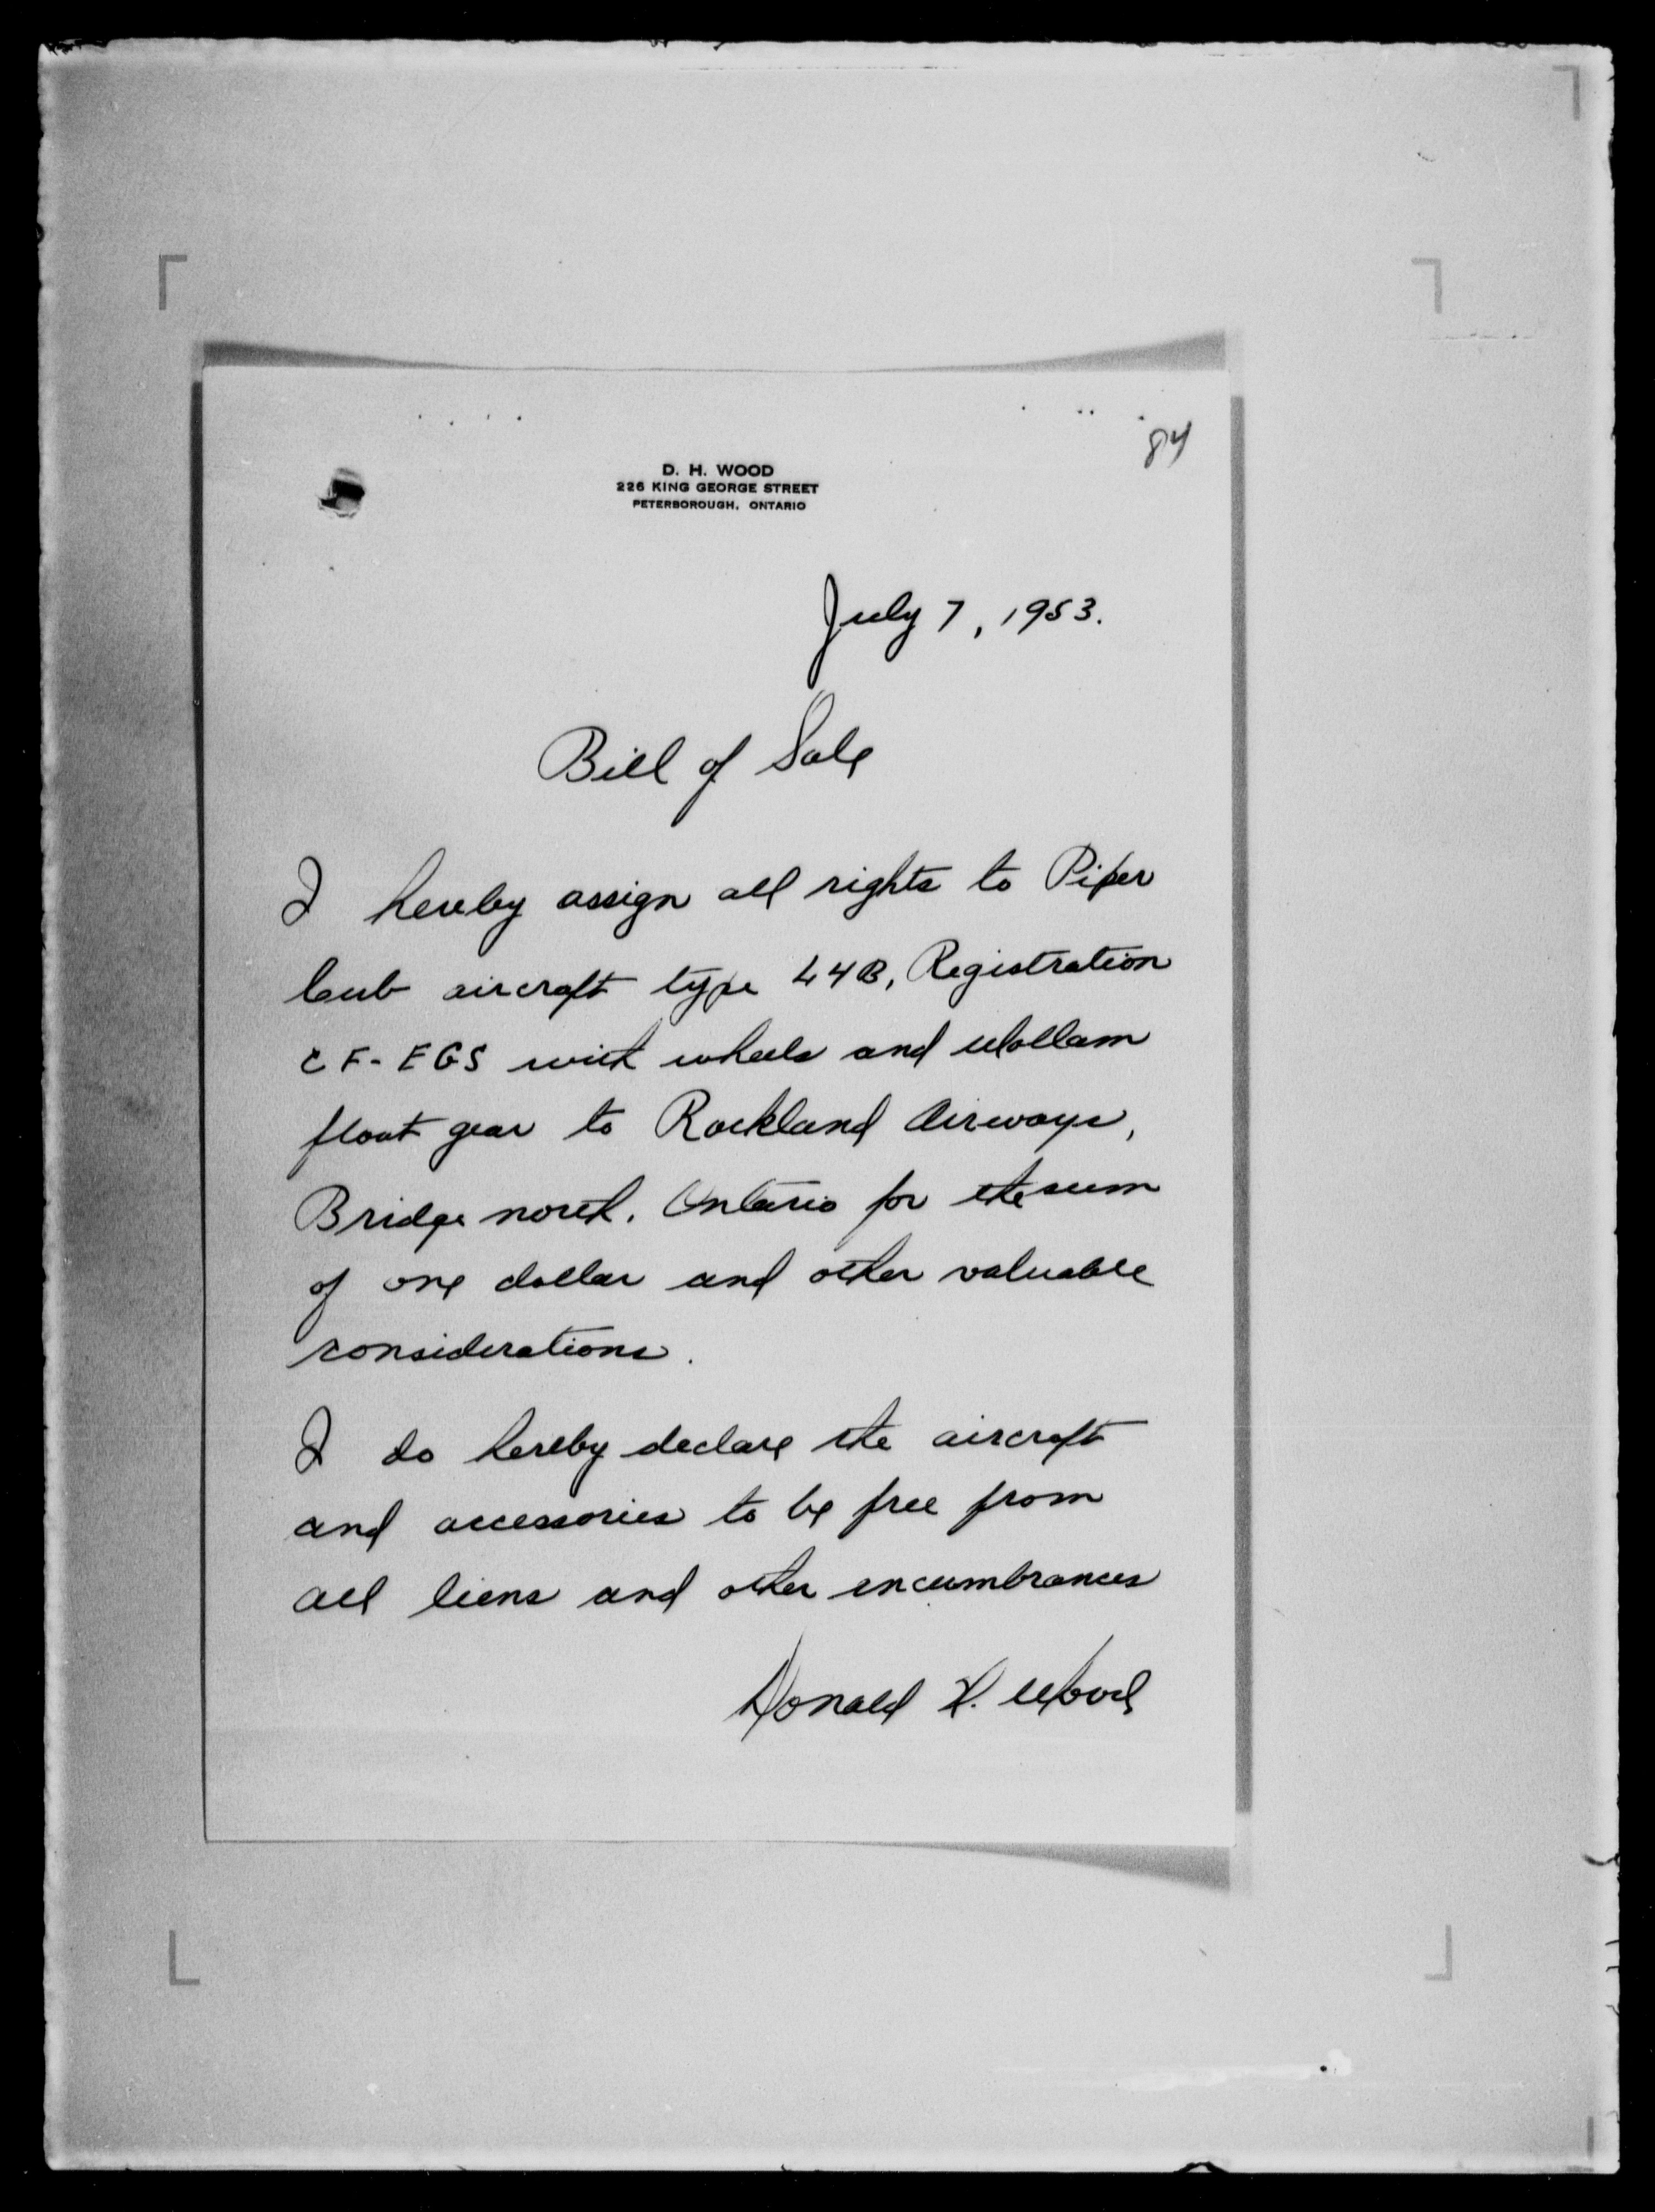 84
D. H. WOOD
226 KING GEORGE STREET
PETERBOROUGH, ONTARIO
July 7, 1953.
Bill of Sale
I hereby assign all rights to Piper
Cub aircraft type L4B, Registration
CF-EGS with wheels and Wollam
float gear to Rockland Airways,
Bridge north, Ontario for the sum
of one dollar and other valuable
considerations.
I do hereby declare the aircraft
and accessories to be free from
all liens and other encumbrances
Donald H. Wood